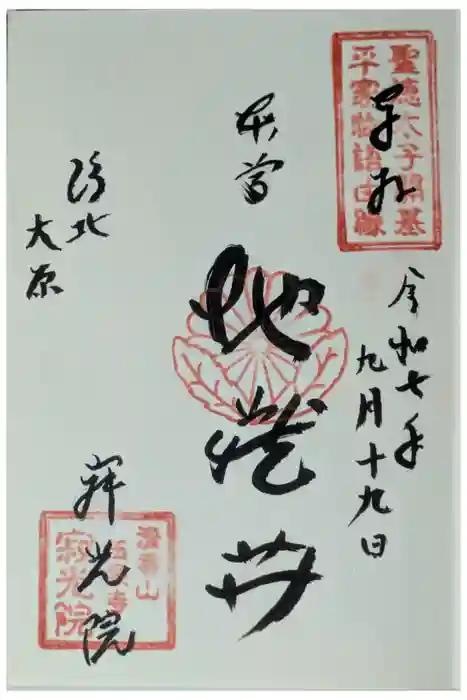 聖徳太子開基
平家物語由縁
奉拝
令和七年
九月十九日
本尊
地蔵𦬇
洛北
大原
寂光院
清香山
玉泉寺
寂光院